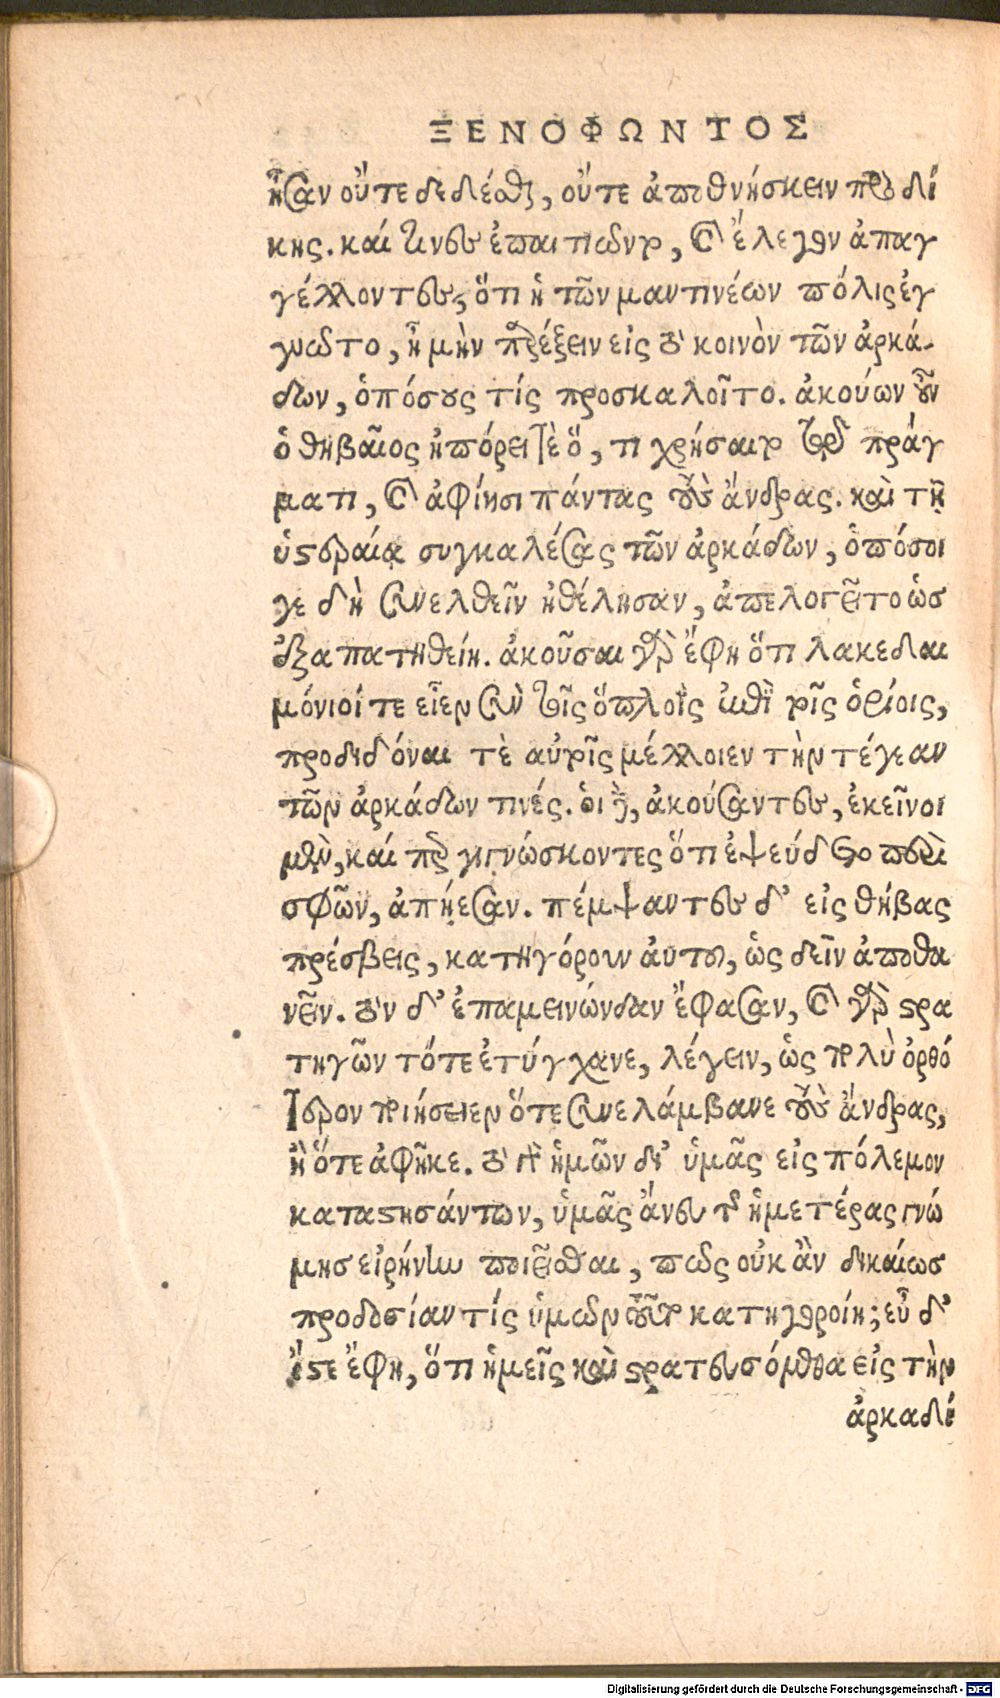 ΞΕΝΟΦΩΝΤΟΣ
ἦσαν οὔτε δεδέσθαι, οὔτε ἀποθνήσκειν πρὸ δί
κης. καί τινες ἐπαιτιῶντο, καὶ ἔλεγον ἀπαγ
γέλλοντες, ὅτι ἡ τῶν μαντινέων πόλις ἐγ
γυῶτο, ἦ μὴν παρέξειν εἰς τὸ κοινὸν τῶν ἀρκά-
δων, ὁπόσους τίς προσκαλοῖτο. ἀκούων οὖν
ὁ θηβαῖος ἠπόρει τὲ ὅ, τι χρήσαιτο τῷ πράγ
ματι, καὶ ἀφίησι πάντας τοὺς ἄνδρας. καὶ τῇ
ὑστεραίᾳ συγκαλέσας τῶν ἀρκάδων, ὁπόσοι
γε δὴ συνελθεῖν ἠθέλησαν, ἀπελογεῖτο ὡσ
ἐξαπατηθείη. ἀκοῦσαι γὰρ ἔφη ὅτι λακεδαι
μόνιοί τε εἶεν σὺν τοῖς ὅπλοις ἐπὶ τοῖς ὁρίοις,
προδιδόναι τὲ αὐτοῖς μέλλοιεν τὴν τέγεαν
τῶν ἀρκάδων τινές. οἱ δὲ, ἀκούσαντες, ἐκεῖνοι
μὲν, καί περ γιγνώσκοντες ὅτι ἐψεύδετο περὶ
σφῶν, ἀπῄεσαν. πέμψαντες δ' εἰς θήβας
πρέσβεις, κατηγόρουν ἀυτοῦ, ὡς δεῖν ἀποθα
νεῖν. τὸν δ' ἐπαμεινώνδαν ἔφασαν, καὶ γὰρ στρα
τηγῶν τότε ἐτύγχανε, λέγειν, ὡς πολὺ ὀρθό
τερον ποιήσειεν ὅτε συνελάμβανε τοὺς ἄνδρας,
ἢ ὅτε ἀφῆκε. τὸ γὰρ ἡμῶν δι' ὑμᾶς εἰς πόλεμον
καταστησάντων, ὑμᾶς ἄνευ τῆς ἡμετέρας γνώ
μησ εἰρήνην ποιεῖσθαι, πῶς οὐκ ἂν δικαίωσ
προδοσίαν τίς ὑμῶν τοῦτο κατηγοροίη; εὖ δ'
ἴστε ἔφη, ὅτι ἡμεῖς καὶ στρατευσόμεθα εἰς τὴν
ἀρκαδί
Digitalisierung gefördert durch die Deutsche Forschungsgemeinschaft - DFG